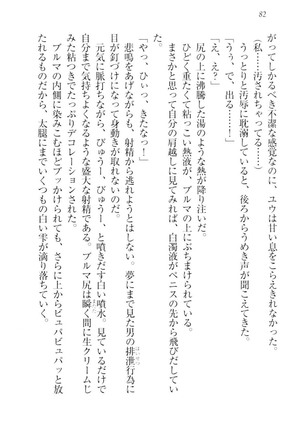 82
がってしかるべき不潔な感覚なのに、ユウは甘い息をこ
(私……汚されちゃってる……)
うっとりと汚辱に耽溺していると、後ろからうめき声が聞こえてきた。
「うぅ、で、出る……!」
「え、え?」
尻の上に沸騰した湯のような熱が降り注いだ。
ひどく重たくて粘っこい熱液が、ブルマの上にぶちまけられている。
まさかと思って自分の肩越しに見てみれば、白濁液がペニスの先から飛びだしてい
た。
「やっ、ひぃっ、きたなっ!」
悲鳴をあげながらも、射精から逃れようとはしない。夢にまで見た男の排泄行為に
目が釘づけになって身動きが取れないのだ。
元気に脈打ちながら、びゅうー、びゅうー、と噴きだす白い噴水。見ているだけで
自分まで気持ちよくなるような盛大な射精である。ブルマ尻は瞬く間に生クリームじ
みた粘つきでたっぷりデコレーションされた。
ブルマの内側に染みこむほどブッかけられても、さらに上からビュパビュパッと放
たれるものだから、太腿にまでいくつもの白い雫が滴り落ちていく。